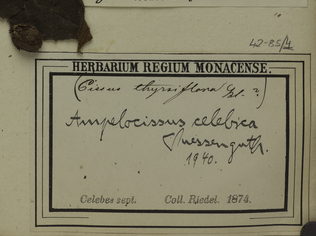 42-85/4
HERBARIUM REGIUM MONACENSE.
(Cissus thyrsiflora Bl. ?)
Ampelocissus celebica
Suessenguth.
1940.
Celebes sept. Coll. Riedel. 1874.